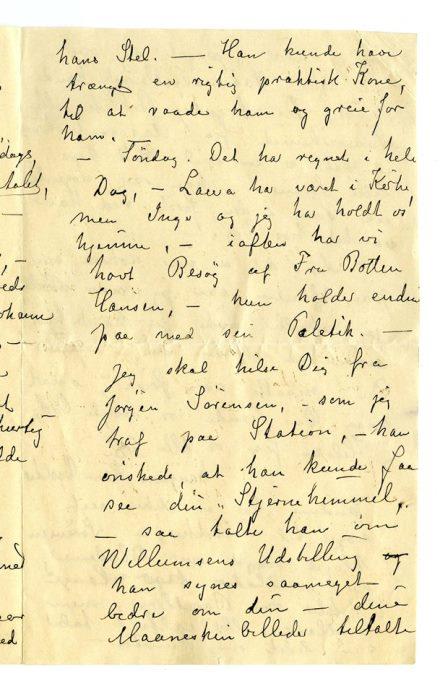 hans Stel. — Han kunde have
trængt en rigtig praktisk Kone,
til at vaade ham og greie for
ham.
— Söndag. Det har regnet i hele
Dag, — Laura har været i Kirke,
men Inga og jeg har holdt os
hjemme, — iaften har vi
havt Besög af Fru Botten
Hansen, — hun holder endnu
paa med sin Paletik. —
Jeg skal hilse Dig fra
Jörgen Sörensen, — som jeg
traf paa Station, — han
önskede, at han kunde faa
see din „Stjernehimmel„.
— saa talte han om
Willumsens Udstilling og
han synes saameget
bedre om din — dine
Maaneskinbilleder tiltalte
dags,
talet,
—
reds
—
met
ed